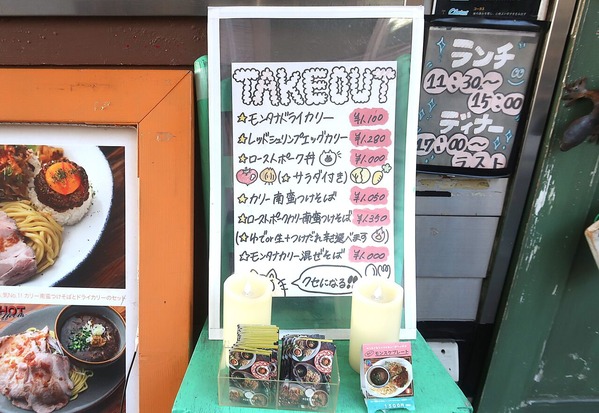 TAKEOUT
☆モンタナドライカリー ¥1.100
☆レッドシュリンプエッグカリー ¥1.280
☆ローストポーク丼 ¥1.000
(☆サラダ付き)
☆カリー南蛮つけそば ¥1.050
☆ローストポークカリー南蛮つけそば ¥1.350
(☆ゆでor生+つけだれ 選べます
☆モンタナカリー混ぜそば ¥1.000
クセになる!!
ランチ
11:30~
15:00
ディナー
17:00~
ラスト
カリー南蛮つけそばとドライカリーのセット
HOT
モンスタプレート